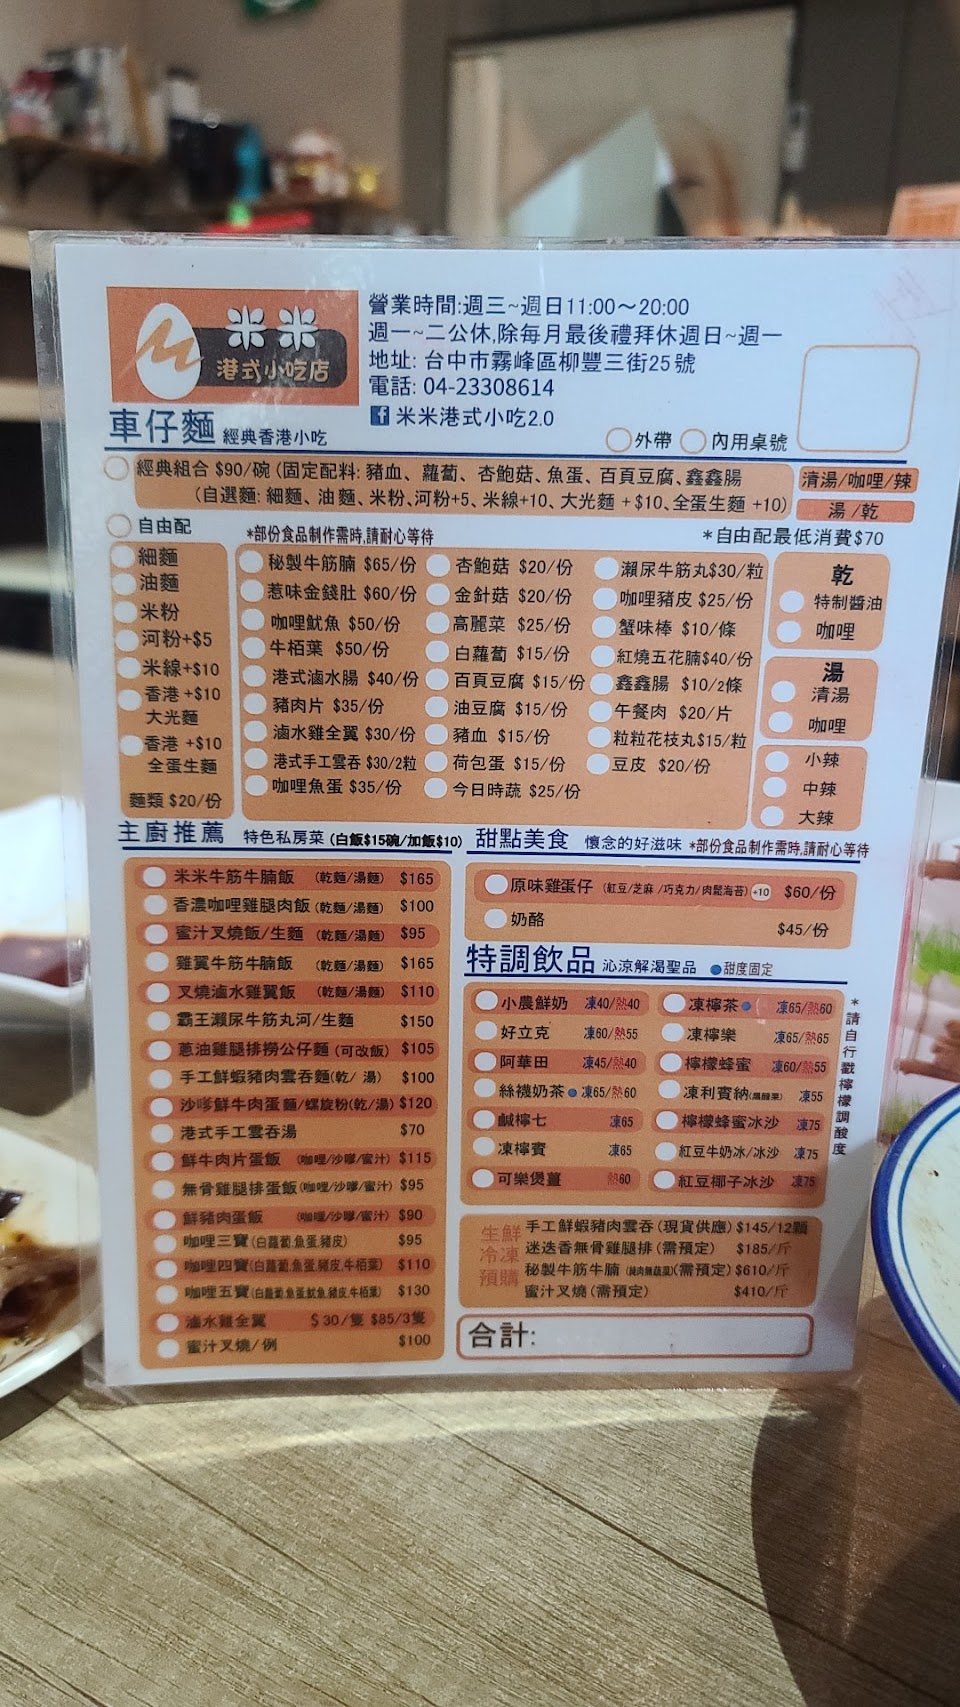 米米
港式小吃店
營業時間:週三~週日11:00~20:00
週一~二公休,除每月最後禮拜休週日~週一
地址: 台中市霧峰區柳豐三街25號
電話: 04-23308614
米米港式小吃2.0
車仔麵 經典香港小吃
外帶 內用桌號
經典組合 $90/碗 (固定配料: 豬血、蘿蔔、杏鮑菇、魚蛋、百頁豆腐、鑫鑫腸
(自選麵: 細麵、油麵、米粉、河粉+5、米線+10、大光麵 +$10、全蛋生麵 +10)
清湯/咖哩/辣
湯/乾
自由配
*部份食品制作需時,請耐心等待
*自由配最低消費$70
細麵
油麵
米粉
河粉+$5
米線+$10
香港 +$10
大光麵
香港 +$10
全蛋生麵
麵類 $20/份
秘製牛筋腩 $65/份
惹味金錢肚 $60/份
咖哩魷魚 $50/份
牛栢葉 $50/份
港式滷水腸 $40/份
豬肉片 $35/份
滷水雞全翼 $30/份
港式手工雲吞 $30/2粒
咖哩魚蛋 $35/份
杏鮑菇 $20/份
金針菇 $20/份
高麗菜 $25/份
白蘿蔔 $15/份
百頁豆腐 $15/份
油豆腐 $15/份
豬血 $15/份
荷包蛋 $15/份
今日時蔬 $25/份
瀨尿牛筋丸$30/粒
咖哩豬皮 $25/份
蟹味棒 $10/條
紅燒五花腩$40/份
鑫鑫腸 $10/2條
午餐肉 $20/片
粒粒花枝丸$15/粒
豆皮 $20/份
乾
特制醬油
咖哩
湯
清湯
咖哩
小辣
中辣
大辣
主廚推薦 特色私房菜 (白飯$15碗/加飯$10)
米米牛筋牛腩飯 (乾麵/湯麵) $165
香濃咖哩雞腿肉飯 (乾麵/湯麵) $100
蜜汁叉燒飯/生麵 (乾麵/湯麵) $95
雞翼牛筋牛腩飯 (乾麵/湯麵) $165
叉燒滷水雞翼飯 (乾麵/湯麵) $110
霸王瀨尿牛筋丸河/生麵 $150
蔥油雞腿排撈公仔麵 (可改飯) $105
手工鮮蝦豬肉雲吞麵(乾/ 湯) $100
沙嗲鮮牛肉蛋麵/螺旋粉(乾/湯) $120
港式手工雲吞湯 $70
鮮牛肉片蛋飯 (咖哩/沙嗲/蜜汁) $115
無骨雞腿排蛋飯(咖哩/沙嗲/蜜汁) $95
鮮豬肉蛋飯 (咖哩/沙嗲/蜜汁) $90
咖哩三寶(白蘿蔔,魚蛋,豬皮) $95
咖哩四寶(白蘿蔔,魚蛋,豬皮,牛栢葉) $110
咖哩五寶(白蘿蔔,魚蛋,魷魚,豬皮,牛栢葉) $130
滷水雞全翼 $30/隻 $85/3隻
蜜汁叉燒/例 $100
甜點美食 懷念的好滋味 *部份食品制作需時,請耐心等待
原味雞蛋仔 (紅豆/芝麻/巧克力/肉鬆海苔) +10 $60/份
奶酪 $45/份
特調飲品 沁涼解渴聖品 ●甜度固定
小農鮮奶 凍40/熱40
好立克 凍60/熱55
阿華田 凍45/熱40
絲襪奶茶● 凍65/熱60
鹹檸七 凍65
凍檸賓 凍65
可樂煲薑 熱60
凍檸茶● 凍65/熱60
凍檸樂 凍65/熱65
檸檬蜂蜜 凍60/熱55
凍利賓納 凍55
檸檬蜂蜜冰沙 凍75
紅豆牛奶冰/冰沙 凍75
紅豆椰子冰沙 凍75
*請自行戳檸檬調酸度
生鮮冷凍預購
手工鮮蝦豬肉雲吞 (現貨供應) $145/12顆
迷迭香無骨雞腿排 (需預定) $185/斤
秘製牛筋牛腩 (純肉無蔬菜)(需預定) $610/斤
蜜汁叉燒 (需預定) $410/斤
合計: